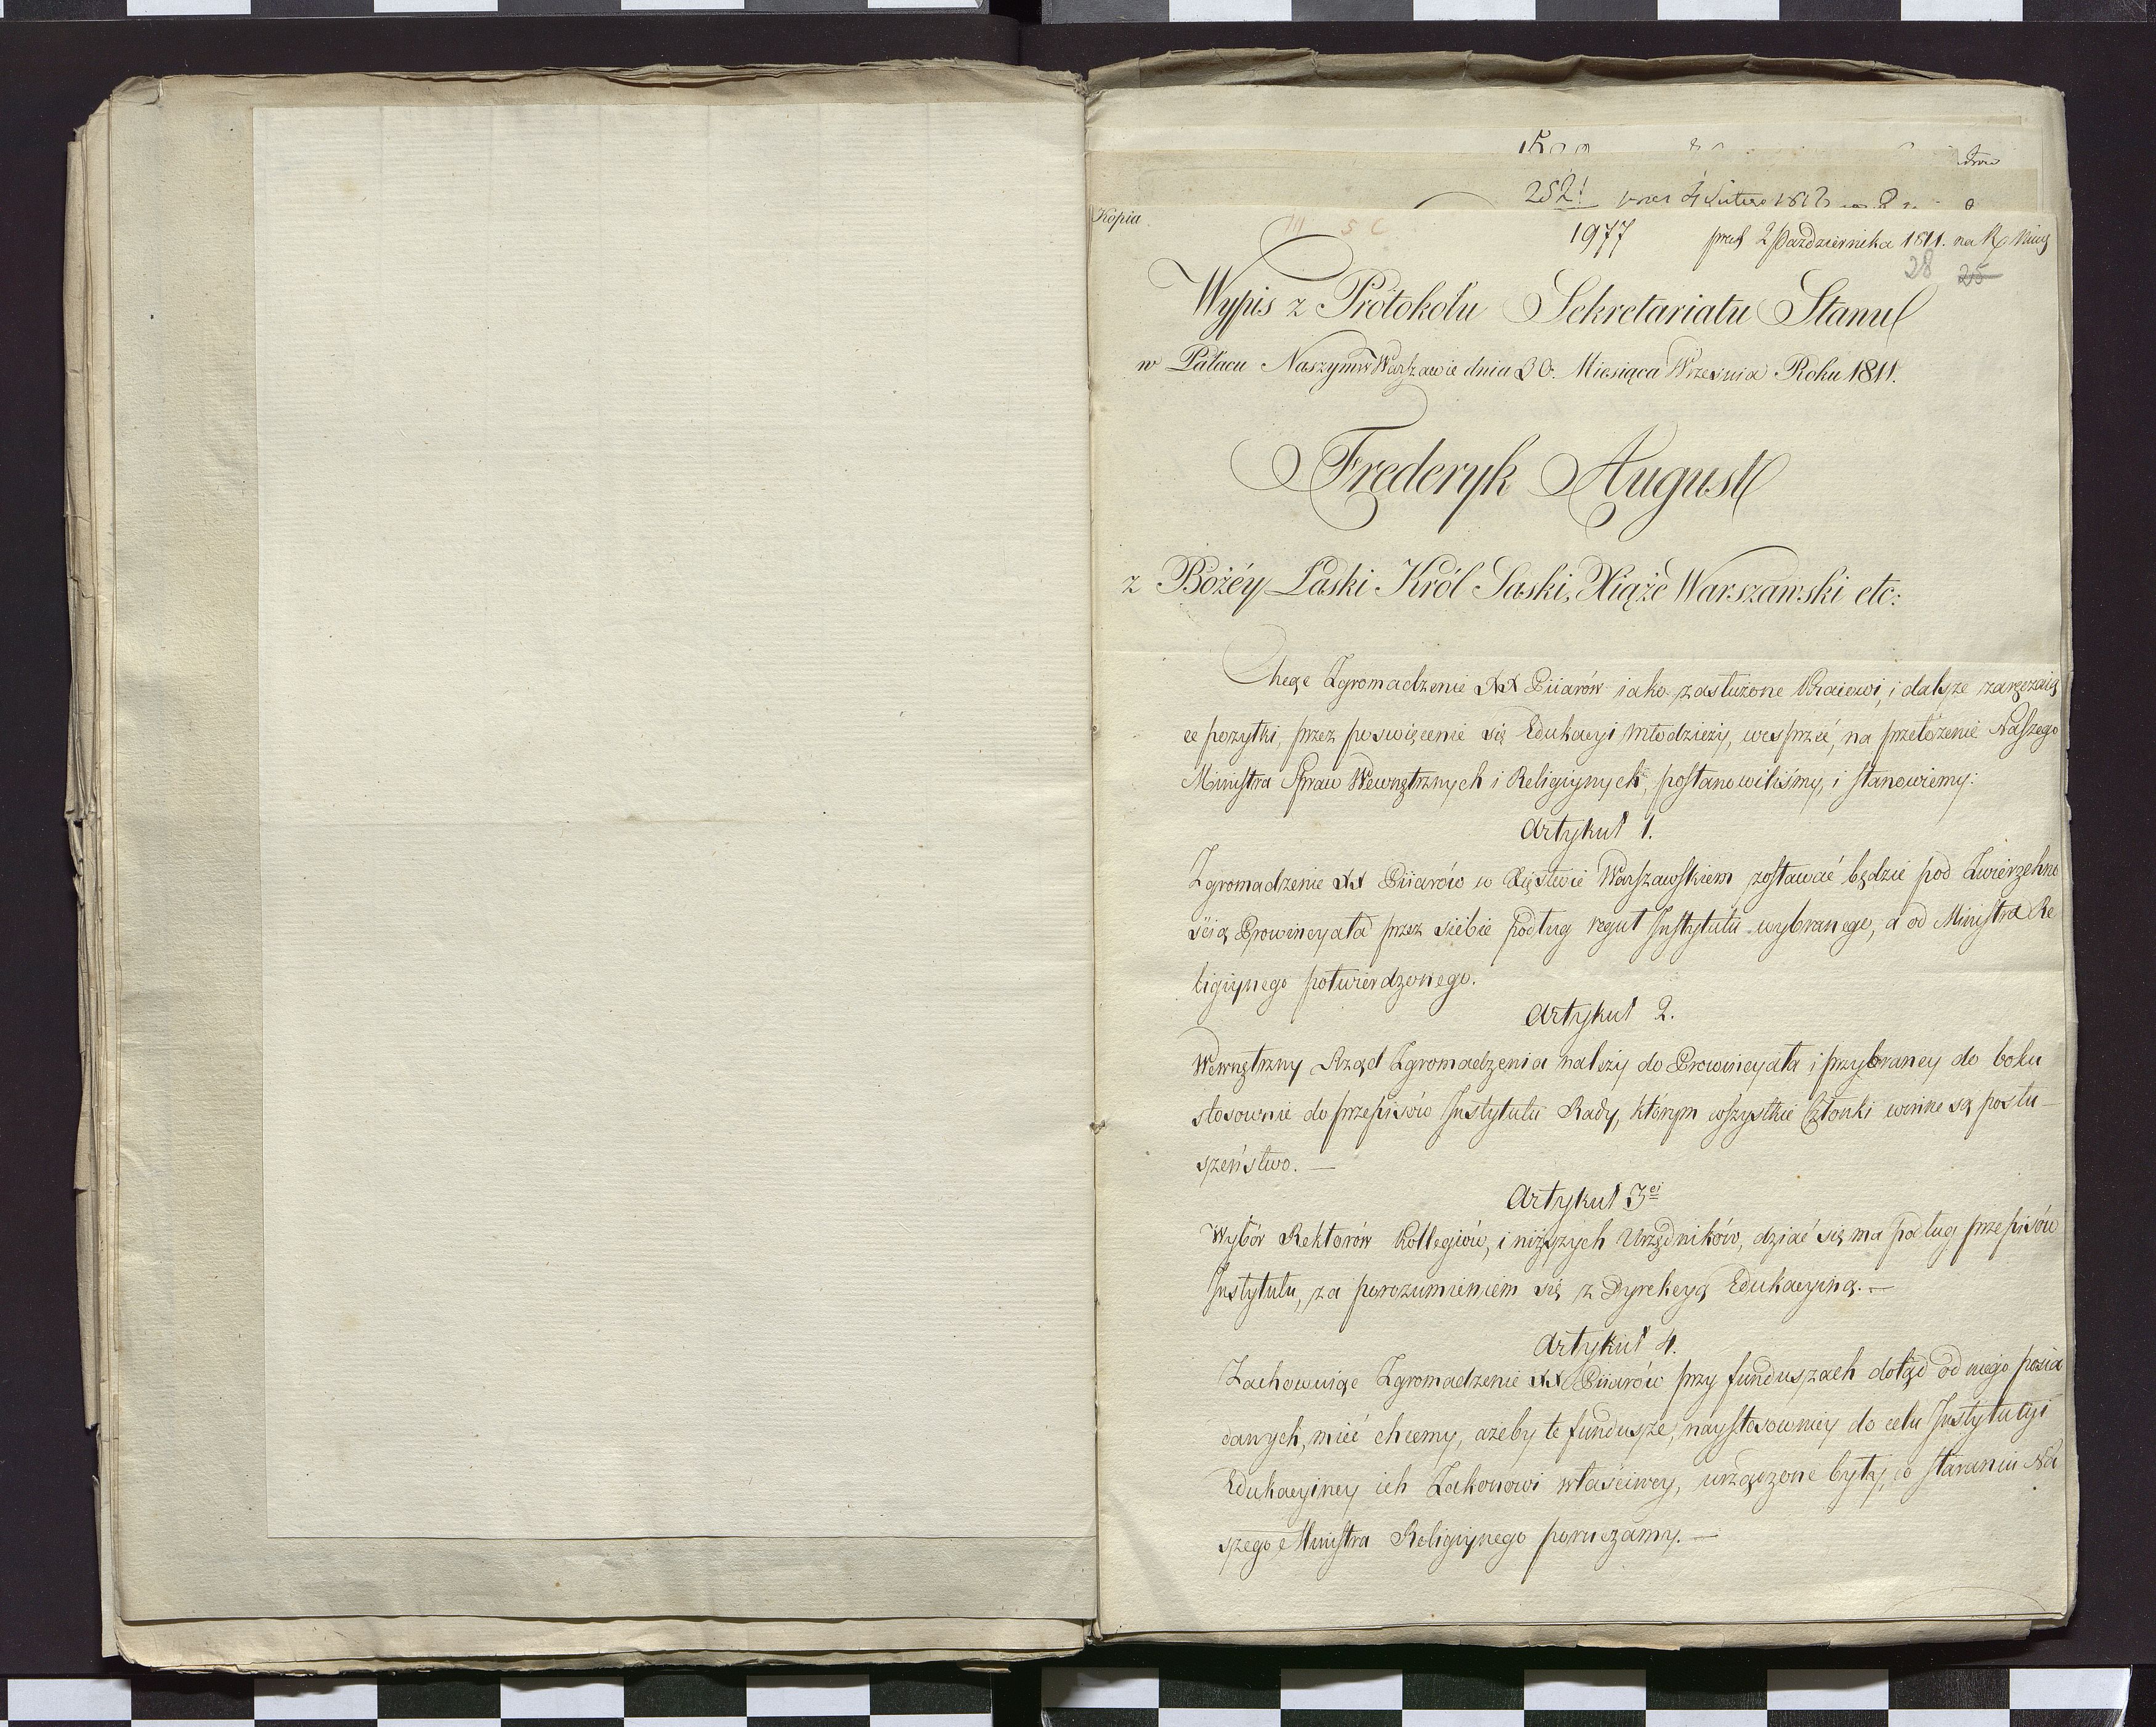 252! 4 Lutego 1812
Kopia
1977 28 25
2 Października 1811. na
Wypis z Protokołu Sekretariatu Stanu
w Pałacu Naszym w Warszawie dnia 30. Miesiąca Września Roku 1811.
Frederyk August
z Bożéy Łaski Król Saski, Xiąże Warszawski etc:
Chcąc Zgromadzenie XX Piiarów iako zasłużone Kraiowi, i dalsze zaręczaią
ce pożytki, przez poswięcenie się Edukacyi młodzieży, wesprzéć, na przełożenie Naszego
Ministra Spraw Wewnętrznych i Religiynych, postanowiliśmy, i stanowiemy:
Artykuł 1.
Zgromadzenie XX Piiarów w Xięstwie Warszawskiem zostawać będzie pod Zwierzchno
ścią Prowincyała przez siebie podług reguł Instytutu wybranego, a od Ministra Re
ligiynego potwierdzonego.
Artykuł 2.
Wewnętrzny Rząd Zgromadzenia należy do Prowincyała i przybraney do boku
stosownie do przepisów Instytutu Rady, którym wszystkie Członki winne są posłu-
szeństwo. —
Artykuł 3ci
Wybór Rektorów Kollegiów, i niższych Urzędników, dziać się ma podług przepisów
Instytutu, za porozumieniem się z Dyrekcyą Edukacyiną. —
Artykuł 4.
Zachowuiąc Zgromadzenie XX Piiarów przy funduszach dotąd od niego posia
danych, mieć chcemy, ażeby te fundusze, naystosowniey do celu Instytucyi
Edukacyiney ich Zakonowi właściwey, urządzone były, co staraniu Na
szego Ministra Religiynego poruczamy. —